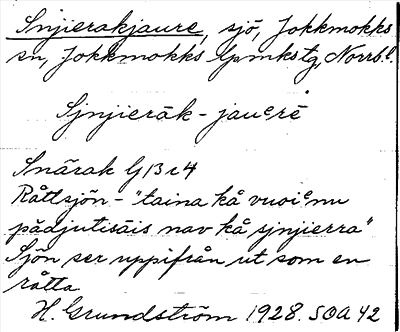 Snjierakjaure, sjö, Jokkmokks
sn, Jokkmokks lpmkstg, Norrb.l.
Sjnjierāk - jauᵉrē
Snārak GB 24
Råttsjön - "taina kå vuoiᵉnu
pādjutisāis nav kå sjnjierra"
Sjön ser uppifrån ut som en
råtta
H. Grundström 1928. SOA 42